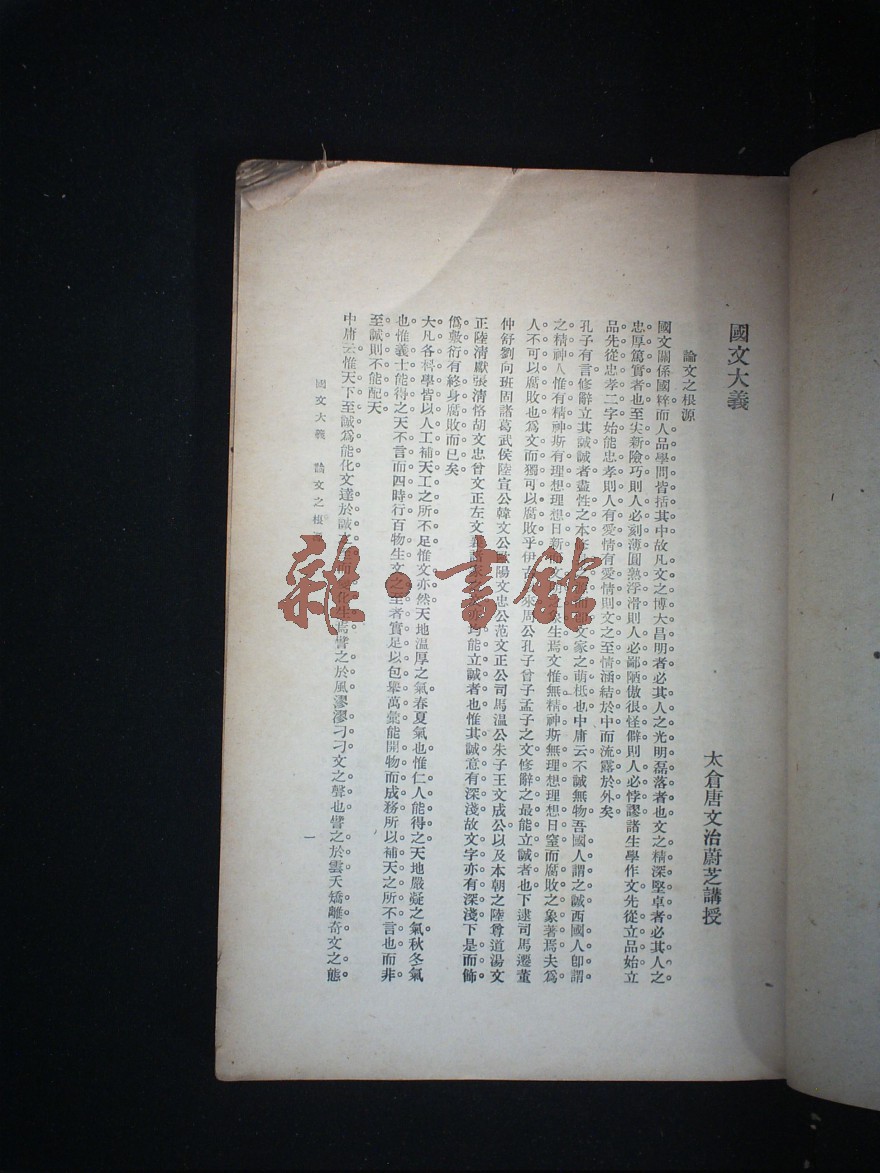 國文大義
太倉唐文治蔚芝講授
論文之根源
國文關係國粹而人品學問皆括其中故凡文之博大昌明者必其人之光明磊落者也文之精深堅卓者必其人之
忠厚篤實者也至尖新險巧則人必刻薄圓熟浮滑則人必鄙陋傲很怪僻則人必悖謬諸生學作文先從立品始立
品先從忠孝二字始能忠孝則人有愛情有愛情則文之至情涵結於中而流露於外矣
孔子有言修辭立其誠誠者盡性之本 文家之萌柢也中庸云不誠無物吾國人謂之誠西國人卽謂
之精神人惟有精神斯有理想理想日新 生焉文惟無精神斯無理想理想日窒而腐敗之象著焉夫爲
人不可以腐敗也爲文而獨可以腐敗乎伊古 來周公孔子曾子孟子之文修辭之最能立誠者也下逮司馬遷董
仲舒劉向班固諸葛武侯陸宣公韓文公歐陽文忠公范文正公司馬溫公朱子王文成公以及本朝之陸尊道湯文
正陸清獻張清恪胡文忠曾文正左文 均能立誠者也惟其誠意有深淺故文字亦有深淺下是而飾
僞敷衍有終身腐敗而已矣
大凡各科學皆以人工補天工之所不足惟文亦然天地溫厚之氣春夏氣也惟仁人能得之天地嚴凝之氣秋冬氣
也惟義士能得之天不言而四時行百物生文之至者實足以包舉萬彙能開物而成務所以補天之所不言也而非
至誠則不能配天
中庸云惟天下至誠爲能化文達於誠 化生焉譬之於風漻漻刁刁文之聲也譬之於雲夭矯離奇文之態
國文大義 論文之根
一
雜·書館